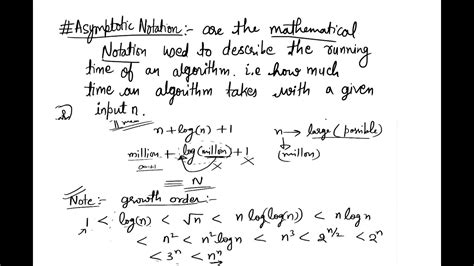 # Asymptotic Notation :- are the mathematical
Notation used to describe the running
time of an algorithm. i.e how much
time an algorithm takes with a given
input n.
n + log(n) + 1
n → large (possible)
million + log(millon) + 1
(millon)
N
Note:- growth order:-
1 < log(n) < √n < n log(log(n)) < n log n
< n² < n² log n < n³ < 2^(n/2) < 2ⁿ
< 3ⁿ < nⁿ